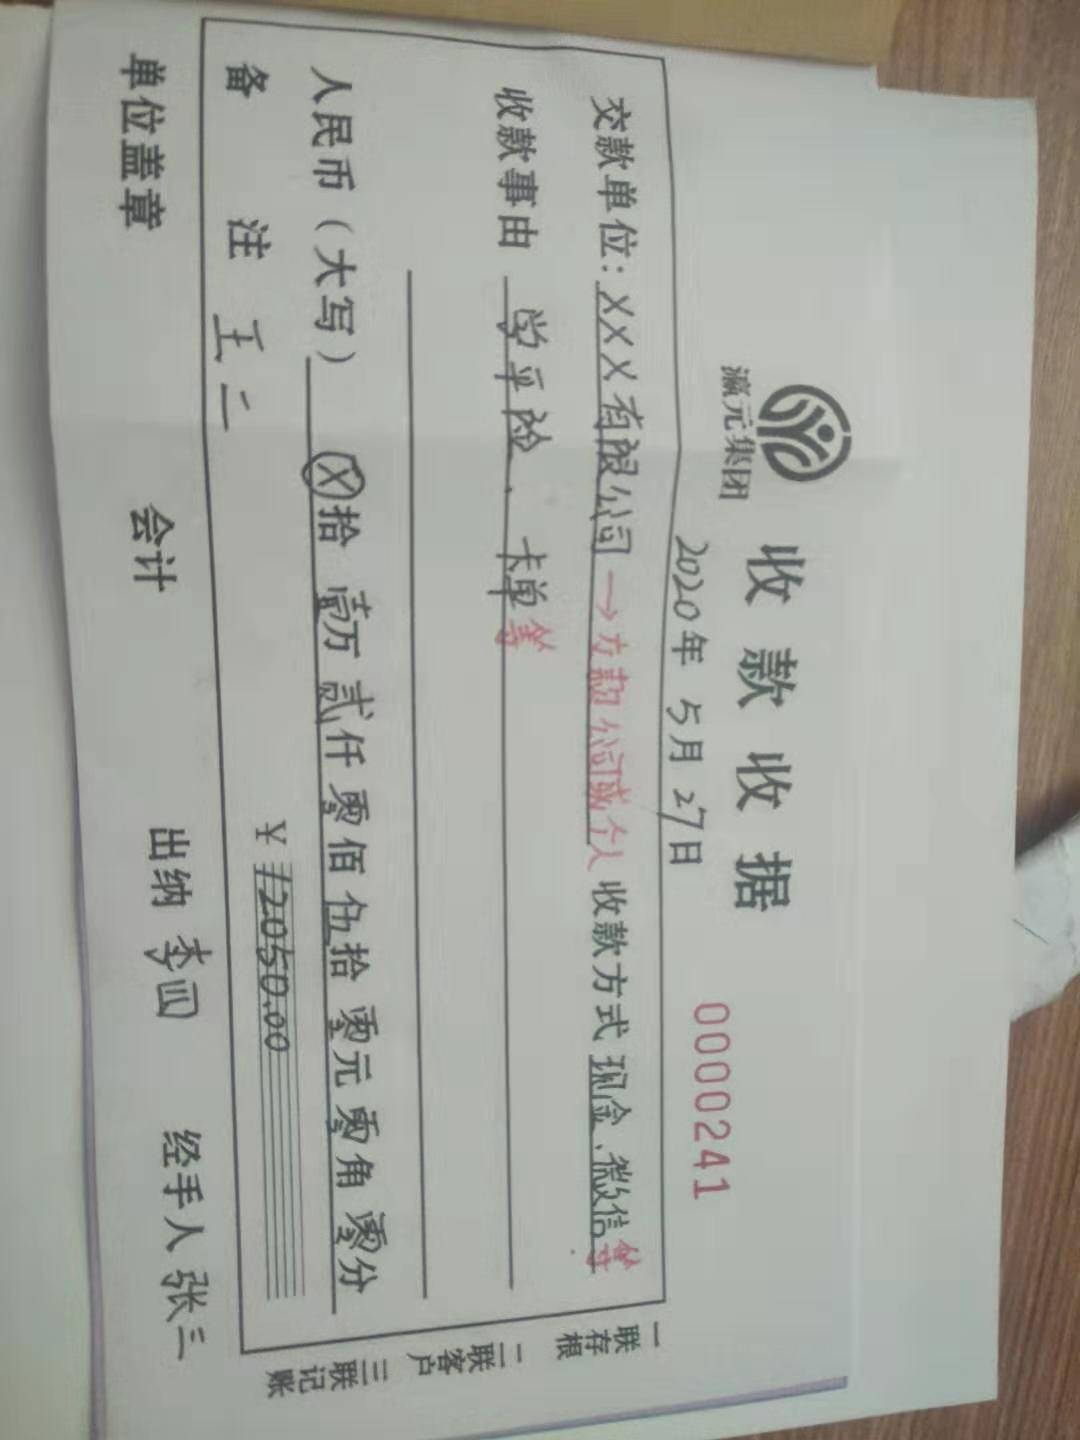 瀛元集团
收款收据
2020年5月27日
0000241
交款单位：XXX有限公司→方款公司或个人 收款方式 现金、微信等
收款事由 学平险、卡单等
人民币（大写）ⓧ拾壹万贰仟零佰伍拾零元零角零分
¥12050.00
备注 王二
单位盖章 会计 出纳 李四 经手人 张三
一联存根
二联客户
三联记账